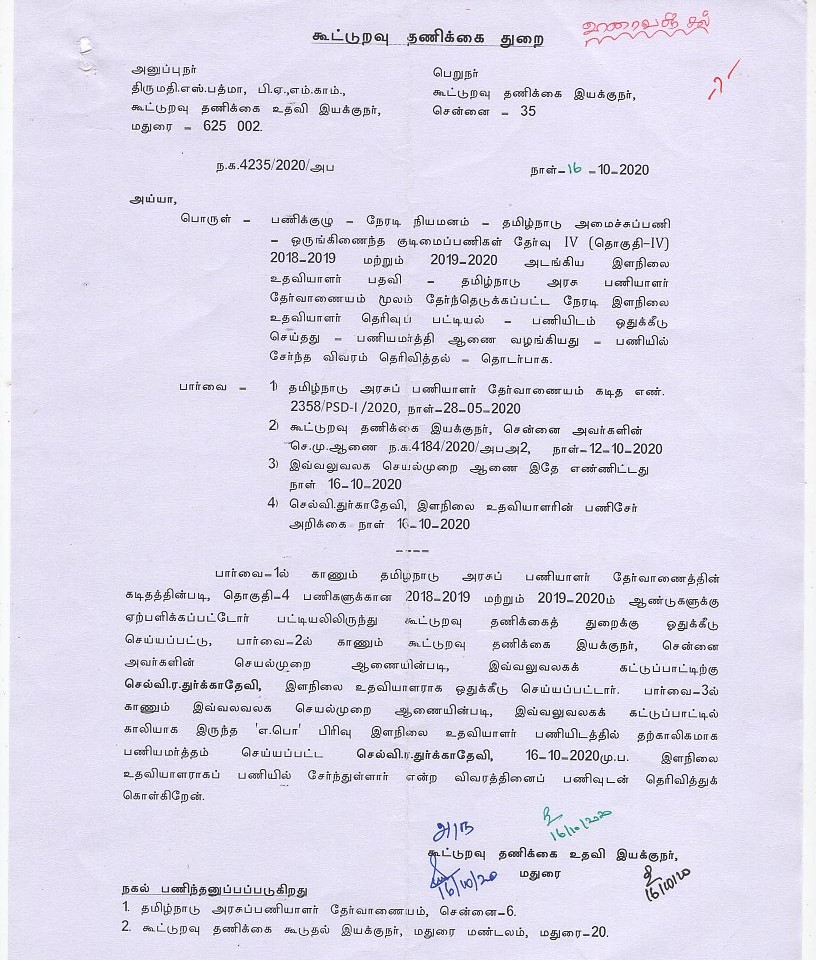 கூட்டுறவு தணிக்கை துறை
அனுப்புநர்
திருமதி.எஸ்.பத்மா, பி.ஏ.,எம்.காம்.,
கூட்டுறவு தணிக்கை உதவி இயக்குநர்,
மதுரை – 625 002.
பெறுநர்
கூட்டுறவு தணிக்கை இயக்குநர்,
சென்னை – 35
ந.க.4235/2020/அப
நாள்–16 –10–2020
அய்யா,
பொருள் – பணிக்குழு – நேரடி நியமனம் – தமிழ்நாடு அமைச்சுப்பணி
– ஒருங்கிணைந்த குடிமைப்பணிகள் தேர்வு IV (தொகுதி–IV)
2018–2019 மற்றும் 2019–2020 அடங்கிய இளநிலை
உதவியாளர் பதவி – தமிழ்நாடு அரசு பணியாளர்
தேர்வாணையம் மூலம் தேர்ந்தெடுக்கப்பட்ட நேரடி இளநிலை
உதவியாளர் தெரிவுப் பட்டியல் – பணியிடம் ஒதுக்கீடு
செய்தது – பணியமர்த்தி ஆணை வழங்கியது – பணியில்
சேர்ந்த விவரம் தெரிவித்தல் – தொடர்பாக.
பார்வை – 1) தமிழ்நாடு அரசுப் பணியாளர் தேர்வாணையம் கடித எண்.
2358/PSD-I /2020, நாள்–28–05–2020
2) கூட்டுறவு தணிக்கை இயக்குநர், சென்னை அவர்களின்
செ.மு.ஆணை ந.க.4184/2020/அபஅ2, நாள்–12–10–2020
3) இவ்வலுவலக செயல்முறை ஆணை இதே எண்ணிட்டது
நாள் 16–10–2020
4) செல்வி.துர்காதேவி, இளநிலை உதவியாளரின் பணிசேர்
அறிக்கை நாள் 16–10–2020
––––
பார்வை–1ல் காணும் தமிழ்நாடு அரசுப் பணியாளர் தேர்வாணைத்தின்
கடிதத்தின்படி, தொகுதி–4 பணிகளுக்கான 2018–2019 மற்றும் 2019–2020ம் ஆண்டுகளுக்கு
ஏற்பளிக்கப்பட்டோர் பட்டியலிலிருந்து கூட்டுறவு தணிக்கைத் துறைக்கு ஓதுக்கீடு
செய்யப்பட்டு, பார்வை–2ல் காணும் கூட்டுறவு தணிக்கை இயக்குநர், சென்னை
அவர்களின் செயல்முறை ஆணையின்படி, இவ்வலுவலகக் கட்டுப்பாட்டிற்கு
செல்வி.ர.துர்க்காதேவி, இளநிலை உதவியாளராக ஒதுக்கீடு செய்யப்பட்டார். பார்வை–3ல்
காணும் இவ்லவலவக செயல்முறை ஆணையின்படி, இவ்வலுவலகக் கட்டுப்பாட்டில்
காலியாக இருந்த 'எ.பொ' பிரிவு இளநிலை உதவியாளர் பணியிடத்தில் தற்காலிகமாக
பணியமர்த்தம் செய்யப்பட்ட செல்வி.ர.துர்க்காதேவி, 16–10–2020மு.ப. இளநிலை
உதவியாளராகப் பணியில் சேர்ந்துள்ளார் என்ற விவரத்தினைப் பணிவுடன் தெரிவித்துக்
கொள்கிறேன்.
16/10/2020
கூட்டுறவு தணிக்கை உதவி இயக்குநர்,
மதுரை
16/10/20
16/10/20
நகல் பணிந்தனுப்பப்படுகிறது
1. தமிழ்நாடு அரசுப்பணியாளர் தேர்வாணையம், சென்னை–6.
2. கூட்டுறவு தணிக்கை கூடுதல் இயக்குநர், மதுரை மண்டலம், மதுரை–20.